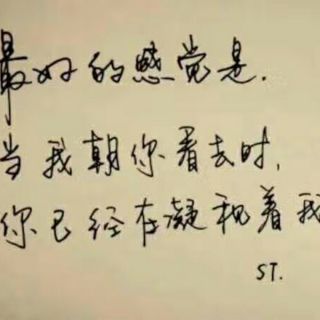 最好的感觉是.
当我朝你看去时,
你已经在凝视着我
ST.